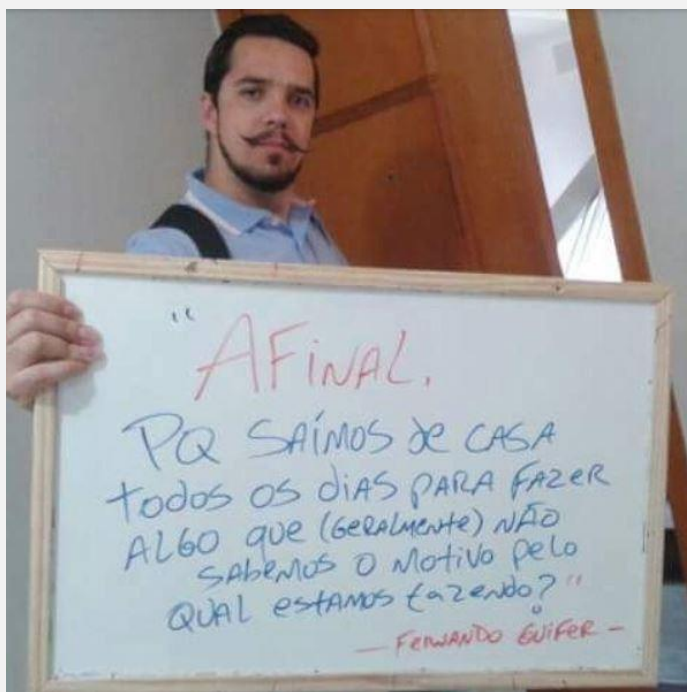 "AFINAL.
PQ SAÍMOS DE CASA
TODOS OS DIAS PARA FAZER
ALGO QUE (GERALMENTE) NÃO
SABEMOS O MOTIVO PELO
QUAL ESTAMOS FAZENDO?"
— FERNANDO GUIFER —